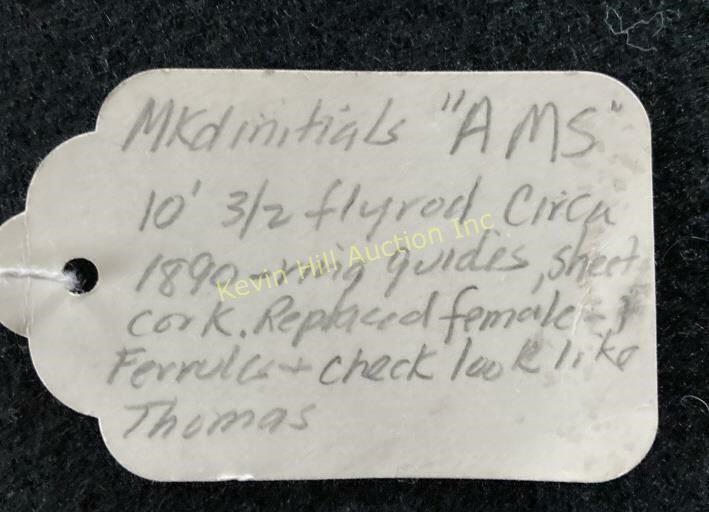 MKd initials "AMS"
10' 3/2 flyrod Circa
1890 - ring guides, sheet
cork. Replaced female -
Ferrules + check look like
Thomas
Kevin Hill Auction Inc